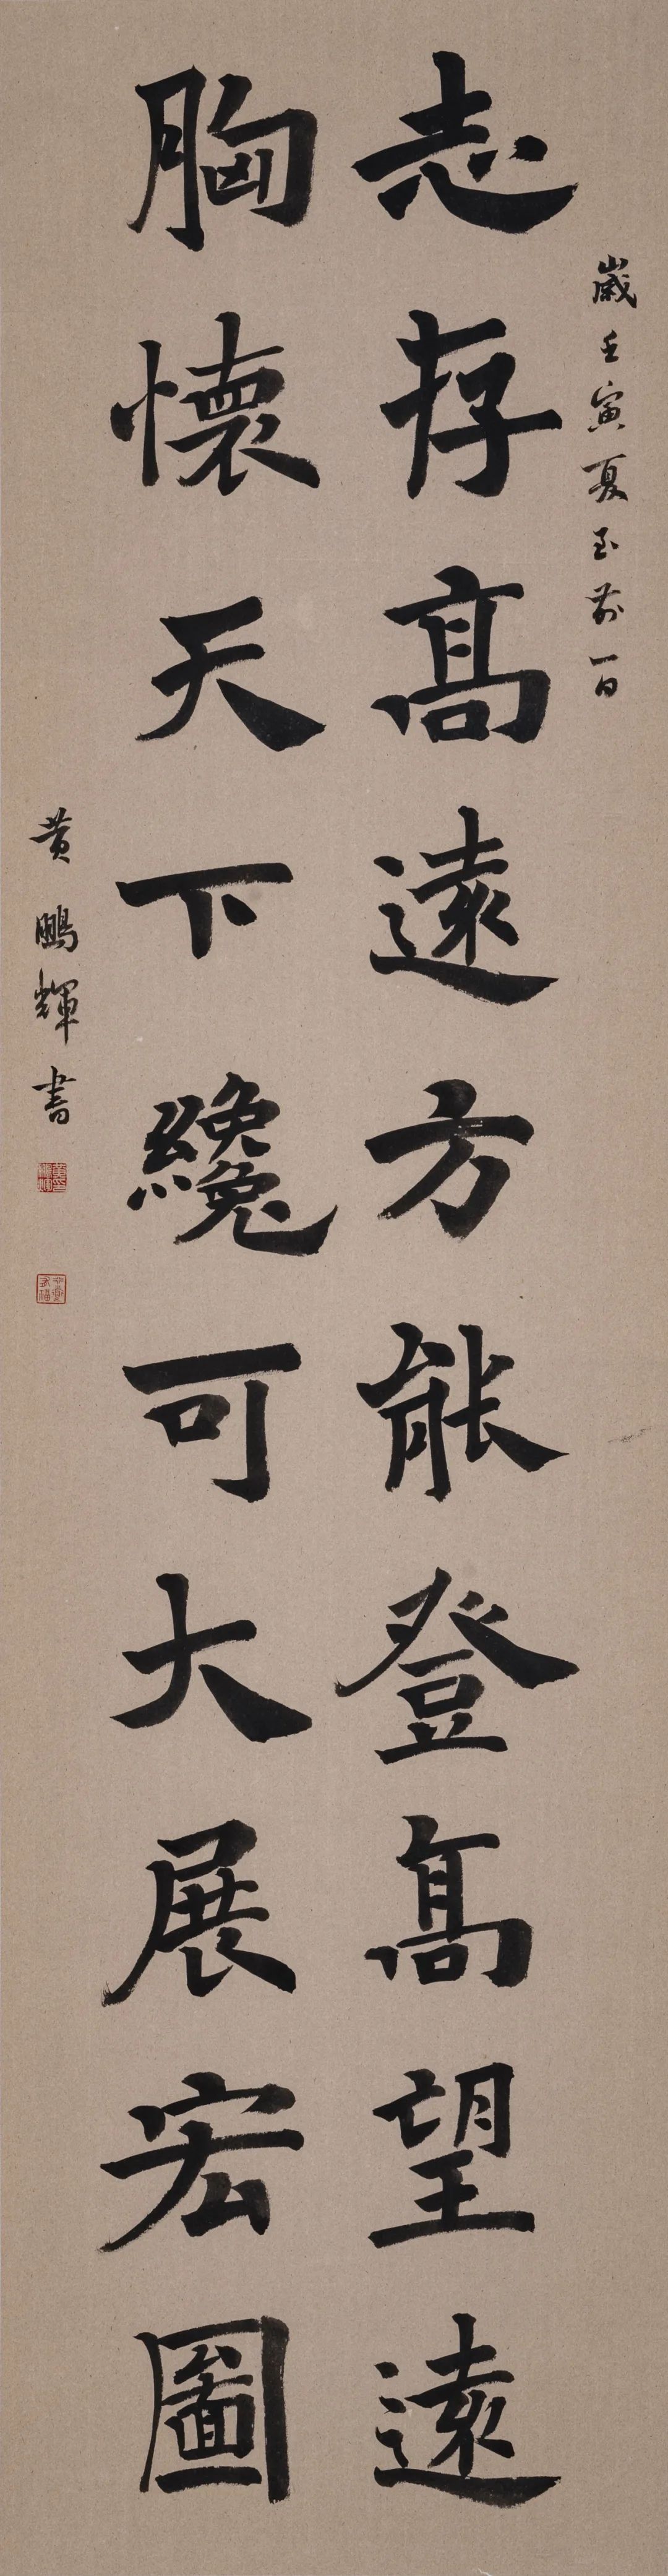 歲壬寅夏至前一日
志存髙遠方能登髙望遠
胸懷天下纔可大展宏圖
黄鵬輝書